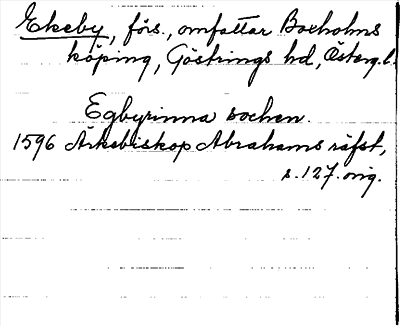 Ekeby, förs., omfattar Boxholms
köping, Göstrings hd, Österg.l.
Egbyrinna sochen.
1596 Ärkebiskop Abrahams räfst,
s. 127. orig.